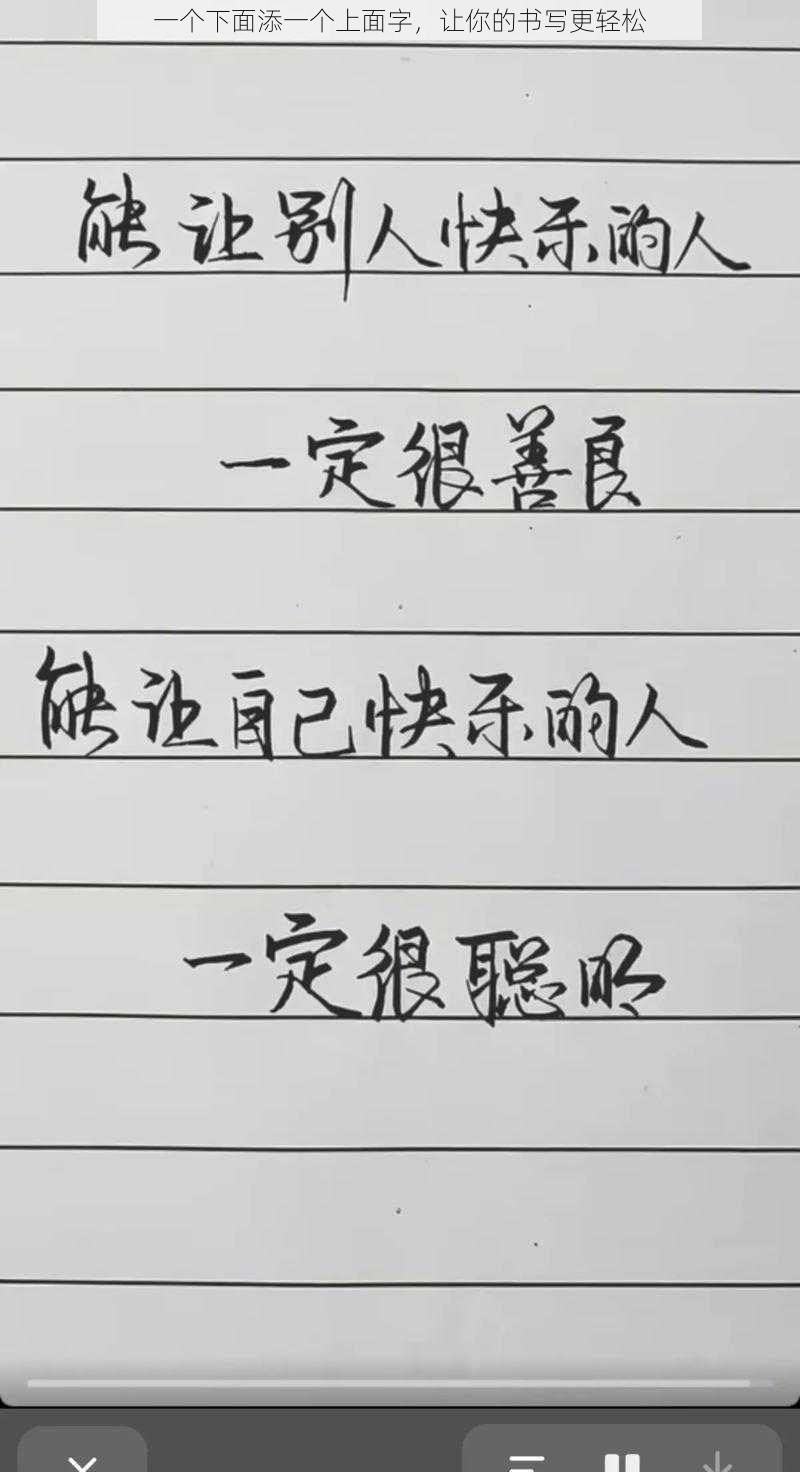 一个下面添一个上面字，让你的书写更轻松
能让别人快乐的人
一定很善良
能让自己快乐的人
一定很聪明